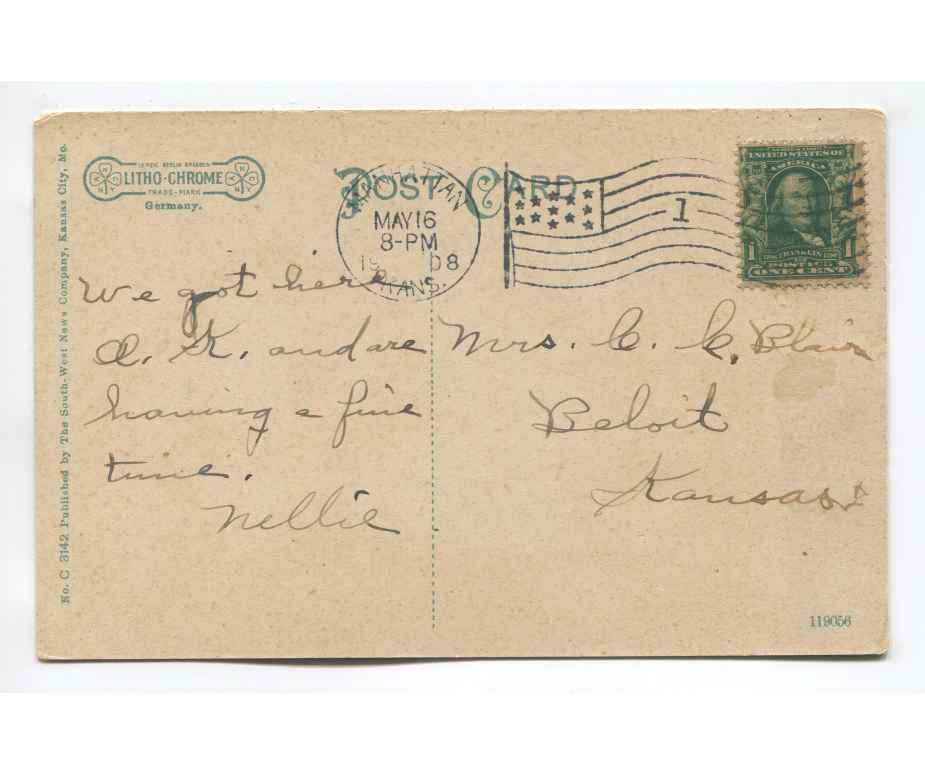 No. C 3142 Published by The South-West News Company, Kansas City, Mo.
LEIPZIG BERLIN DRESDEN
LITHO-CHROME
TRADE-MARK
Germany.
POST CARD
MANHATTAN
MAY 16
8-PM
1908
KANS.
1
UNITED STATES OF
AMERICA
1 FRANKLIN 1
POSTAGE
ONE CENT
We got here
O. K. and are
having a fine
time.
Nellie
Mrs. C. C. Blair
Beloit
Kansas
119056